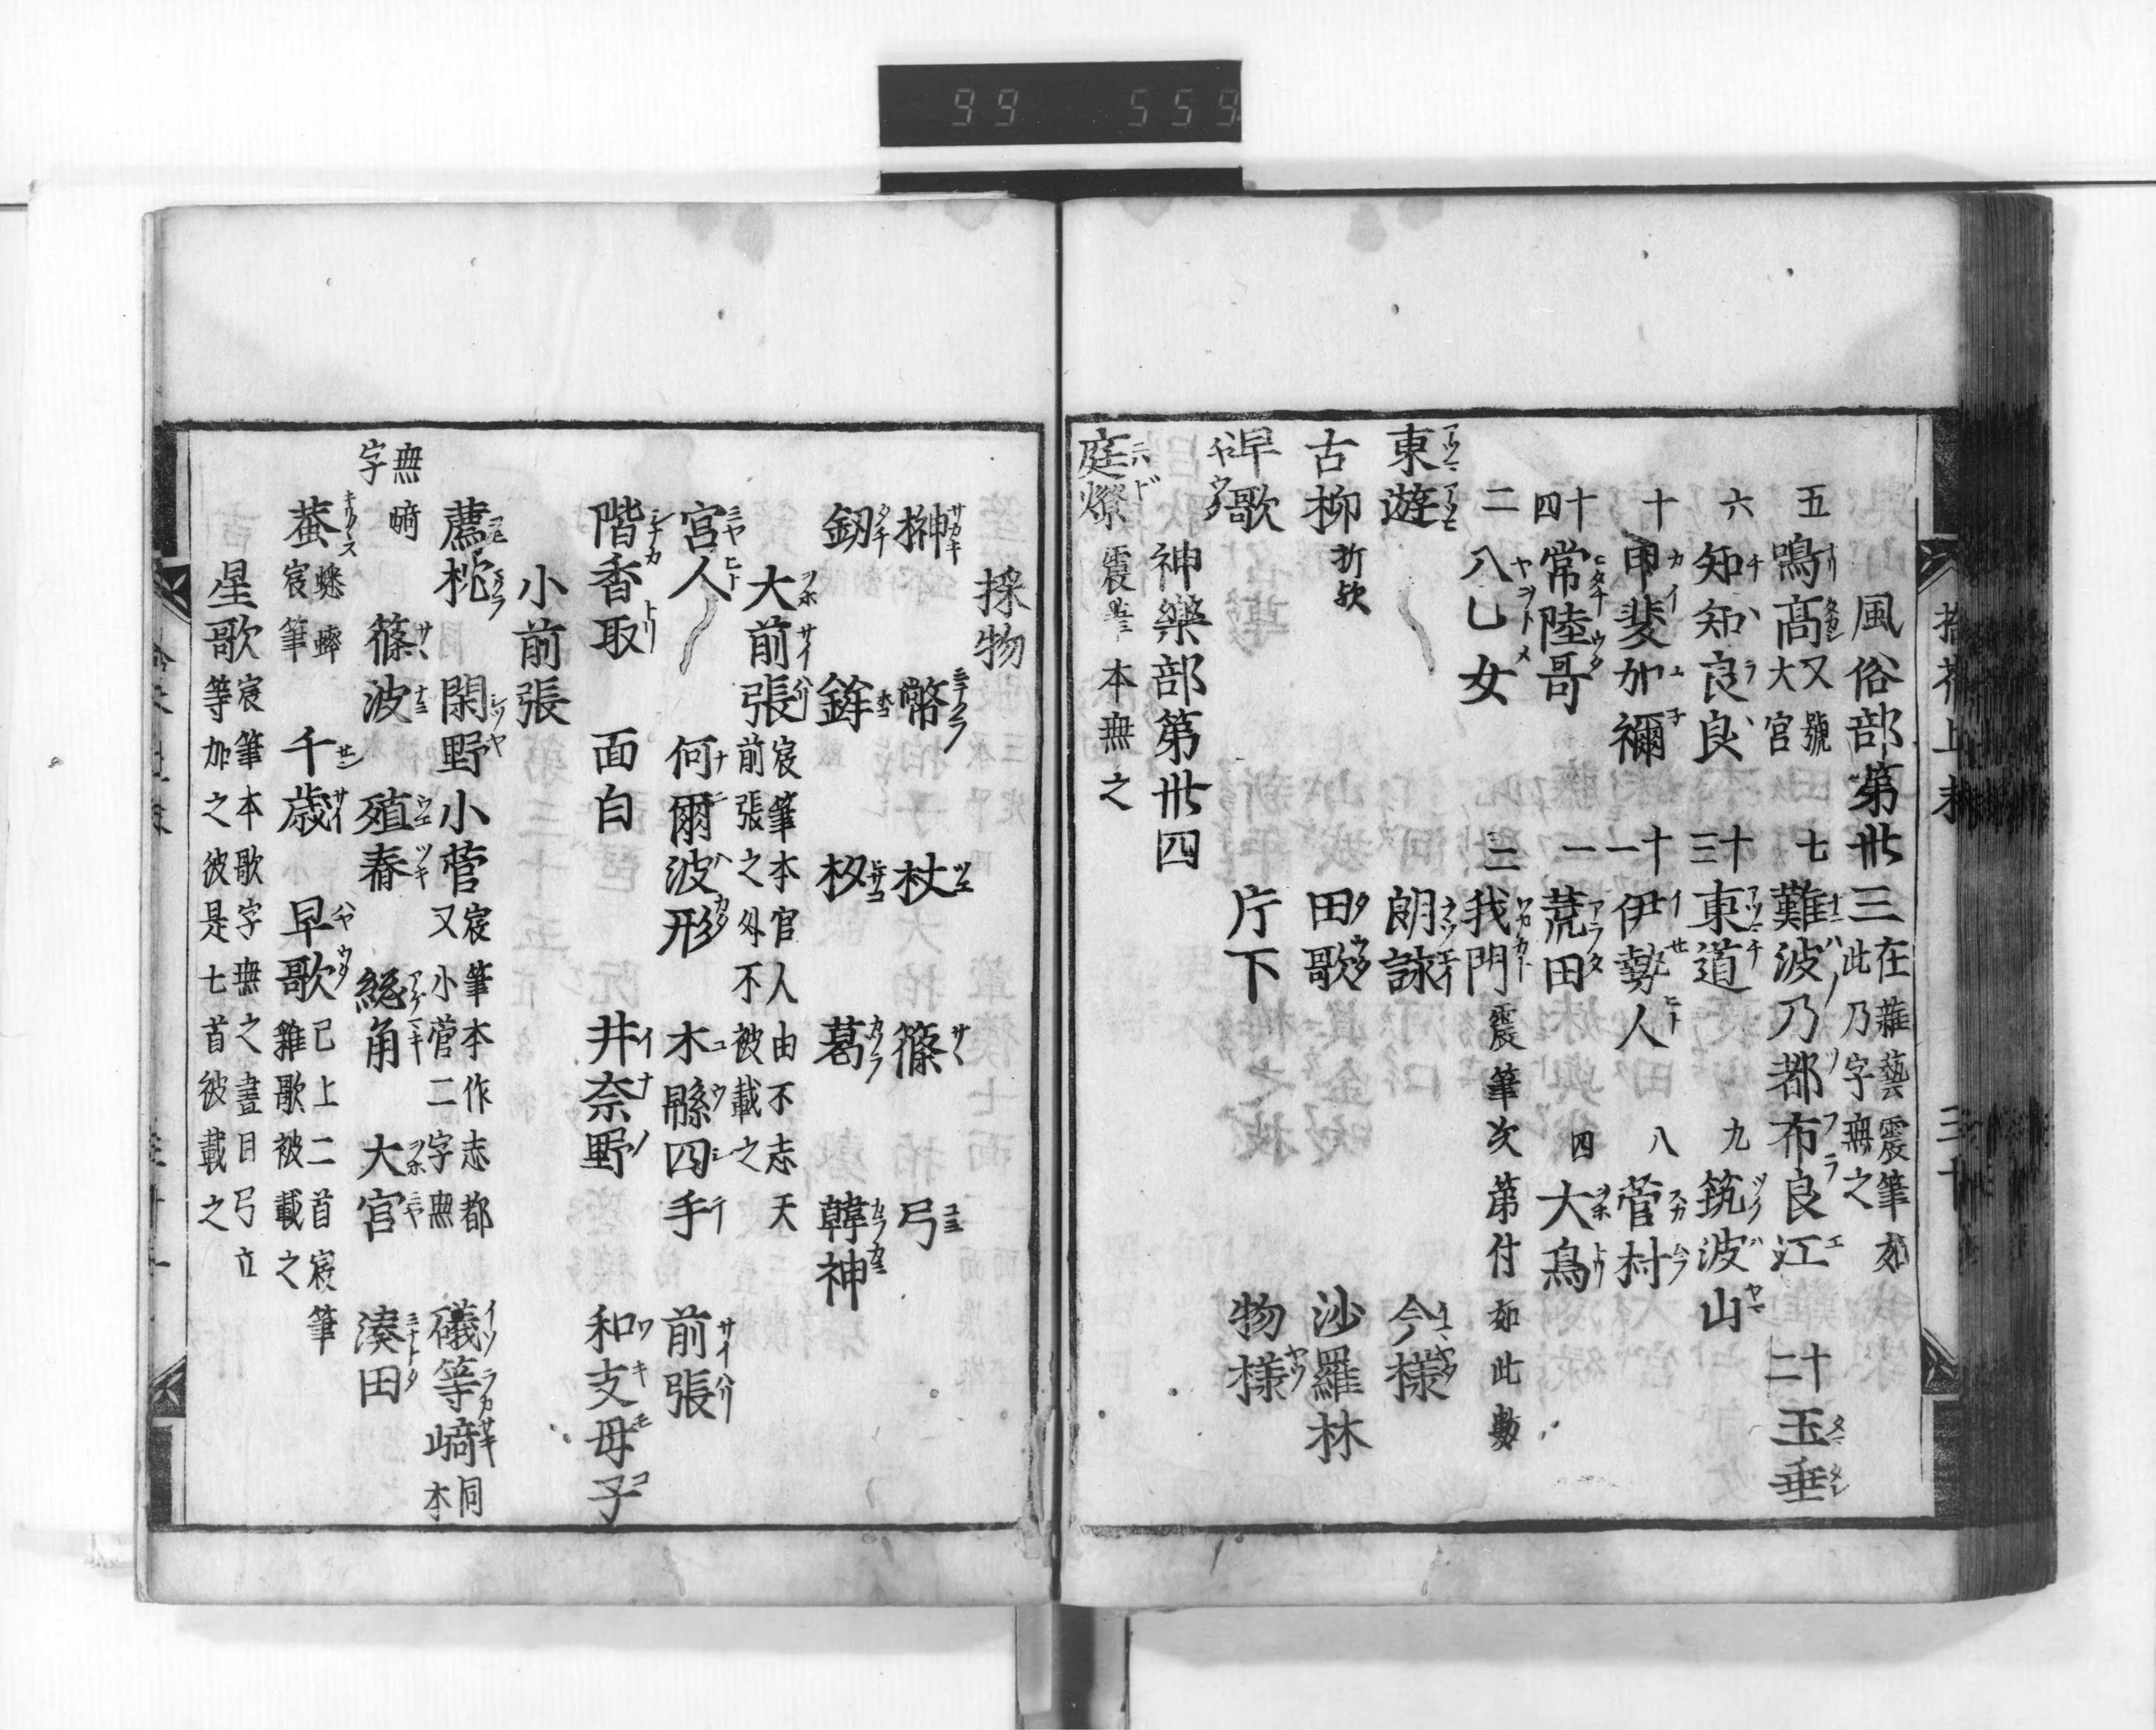 99 559
風俗部第卅三 在雜藝震筆如此乃字無之
五 鳴髙 又號大宮 七 難波乃都布良江 十二 玉垂
六 知知良良 十三 東道 九 筑波山
十 甲斐加禰 十一 伊勢人 八 菅村
十四 常陸哥 一 荒田 四 大鳥
二 八乙女 三 我門 震筆次第付如此數
東遊 朗詠 今樣
古柳 折歟 田歌 沙羅林
早歌 庁下 物樣
神樂部第卅四
庭燎 震筆本無之
採物
榊 幣 杖 篠 弓
釼 鉾 杓 葛 韓神
大前張 宸筆本官人由不志天前張之外不被載之
宮人 何爾波形 木緜四手 前張
階香取 面白 井奈野 和支母子
小前張
薦枕 閑野 小菅 宸筆本作志都又小菅二字無 礒等﨑 同本
無﨑字 篠波 殖舂 総角 大宮 湊田
蛬 蟋蟀宸筆 千歳 早歌 已上二首宸筆雜歌被載之
星歌 宸筆本歌字無之晝目弓立等加之彼是七首彼載之